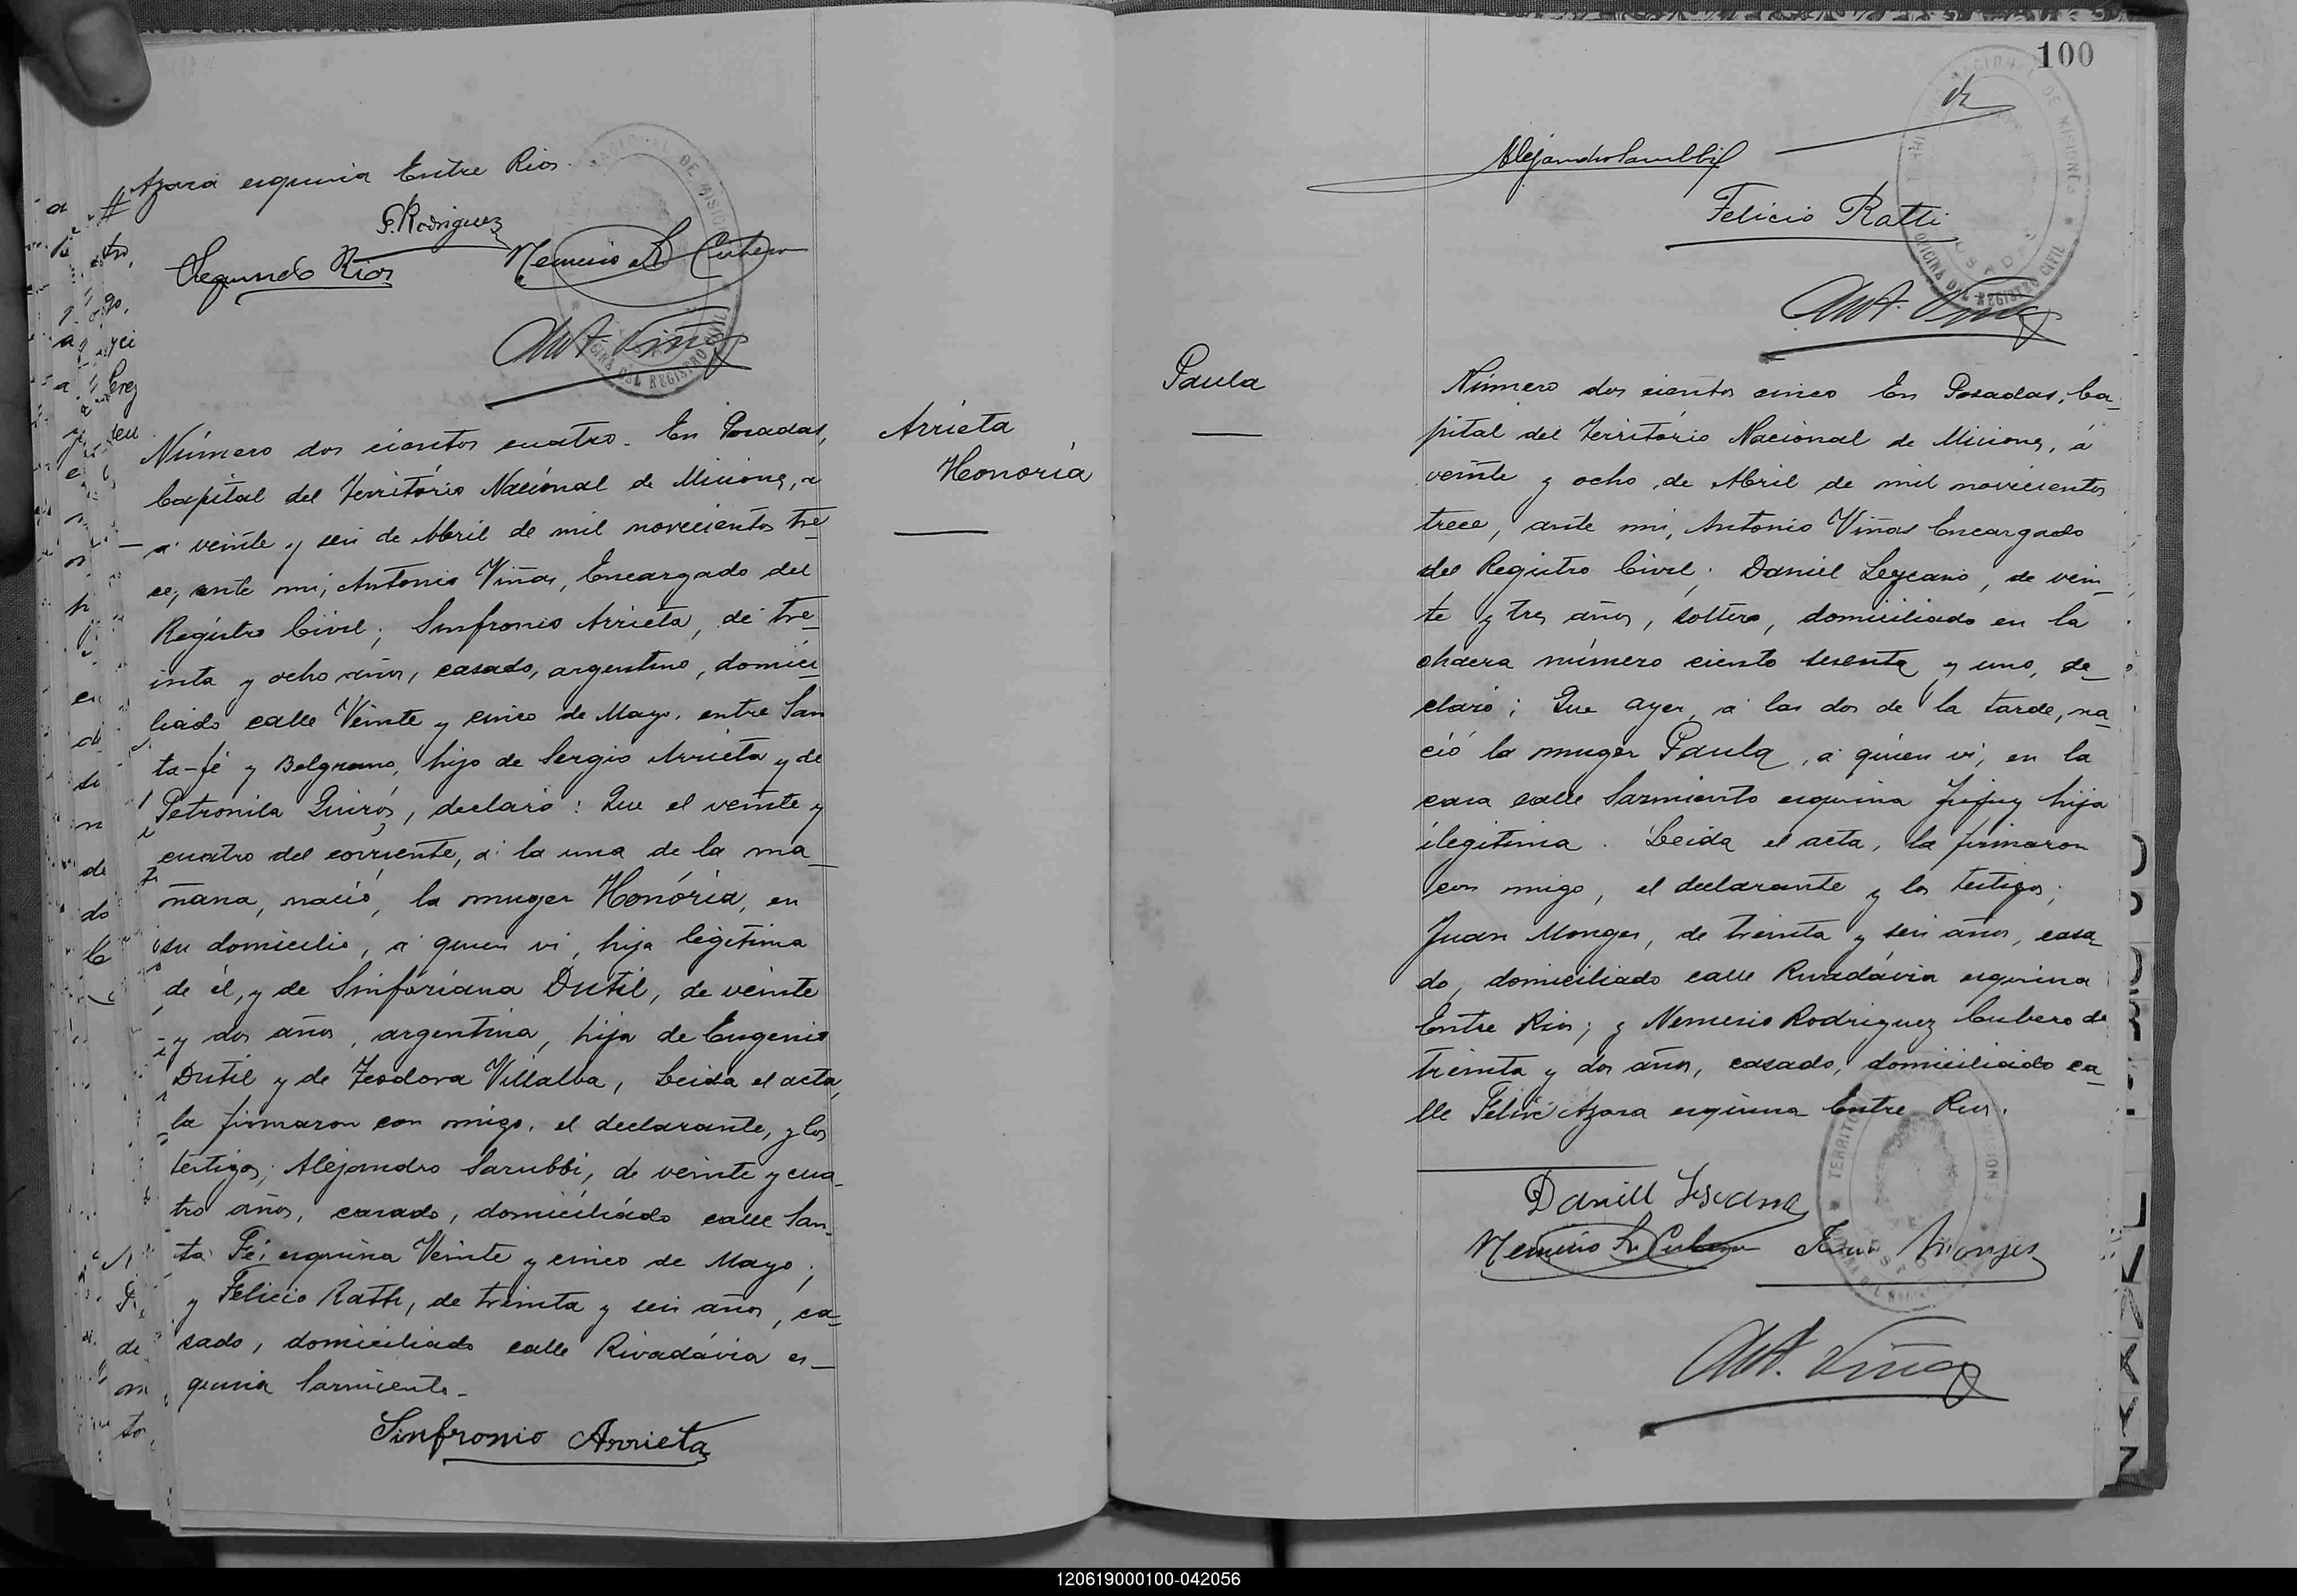 Azara esquina Entre Rios.
P. Rodriguez
Segundo Rios
Nemesio R. Cubero
Ant. Viñas
Arrieta
Honoria
Número dos cientos cuatro. En Posadas,
Capital del Território Nacional de Misiones, a
a veinte y seis de Abril de mil novecientos tre_
ce, ante mi, Antonio Viñas, Encargado del
Registro Civil; Sinfronio Arrieta, de tre_
inta y ocho años, casado, argentino, domici_
liado calle Veinte y cinco de Mayo, entre San
ta-fé y Belgrano, hijo de Sergio Arrieta y de
Petronila Quirós, declaró: Que el veinte y
cuatro del corriente, á la una de la ma_
ñana, nació, la muger Honória, en
su domicilio, a quien vi, hija legitima
de él, y de Sinforiana Dutil, de veinte
y dos años, argentina, hija de Eugenio
Dutil y de Teodora Villalba, Leida el acta,
la firmaron con migo, el declarante, y los
testigos; Alejandro Sarubbi, de veinte y cua_
tro años, casado, domiciliádo calle San_
ta Fé, esquina Veinte y cinco de Mayo;
y Felicio Ratti, de treinta y seis años, ca_
sado, domiciliado calle Rivadávia es_
quina Sarmiento_
Sinfronio Arrieta
100
Alejandro Sarubbi
Felicio Ratti
Ant. Viñas
Paula
Número dos cientos cinco En Posadas, Ca_
pital del Território Nacional de Misiones, á
veinte y ocho de Abril de mil novecientos
trece, ante mi, Antonio Viñas Encargado
del Registro Civil; Daniel Lezcano, de vein_
te y tres años, soltero, domiciliado en la
chacra número ciento sesenta y uno, de_
claró; Que ayer, á las dos de la tarde, na_
ció la muger Paula, a quien vi, en la
casa calle Sarmiento esquina Jujuy hija
ilegitima. Leida el acta, la firmaron
con migo, el declarante y los testigos;
Juan Monges, de treinta y seis años, casa_
do, domiciliado calle Rivadávia esquina
Entre Rios; y Nemesio Rodriguez Cubero de
treinta y dos años, casado, domiciliado ca_
lle Felix Azara esquina Entre Rios.
Daniel Lescano
Nemesio R. Cubero Juan Monges
Ant. Viñas
120619000100-042056